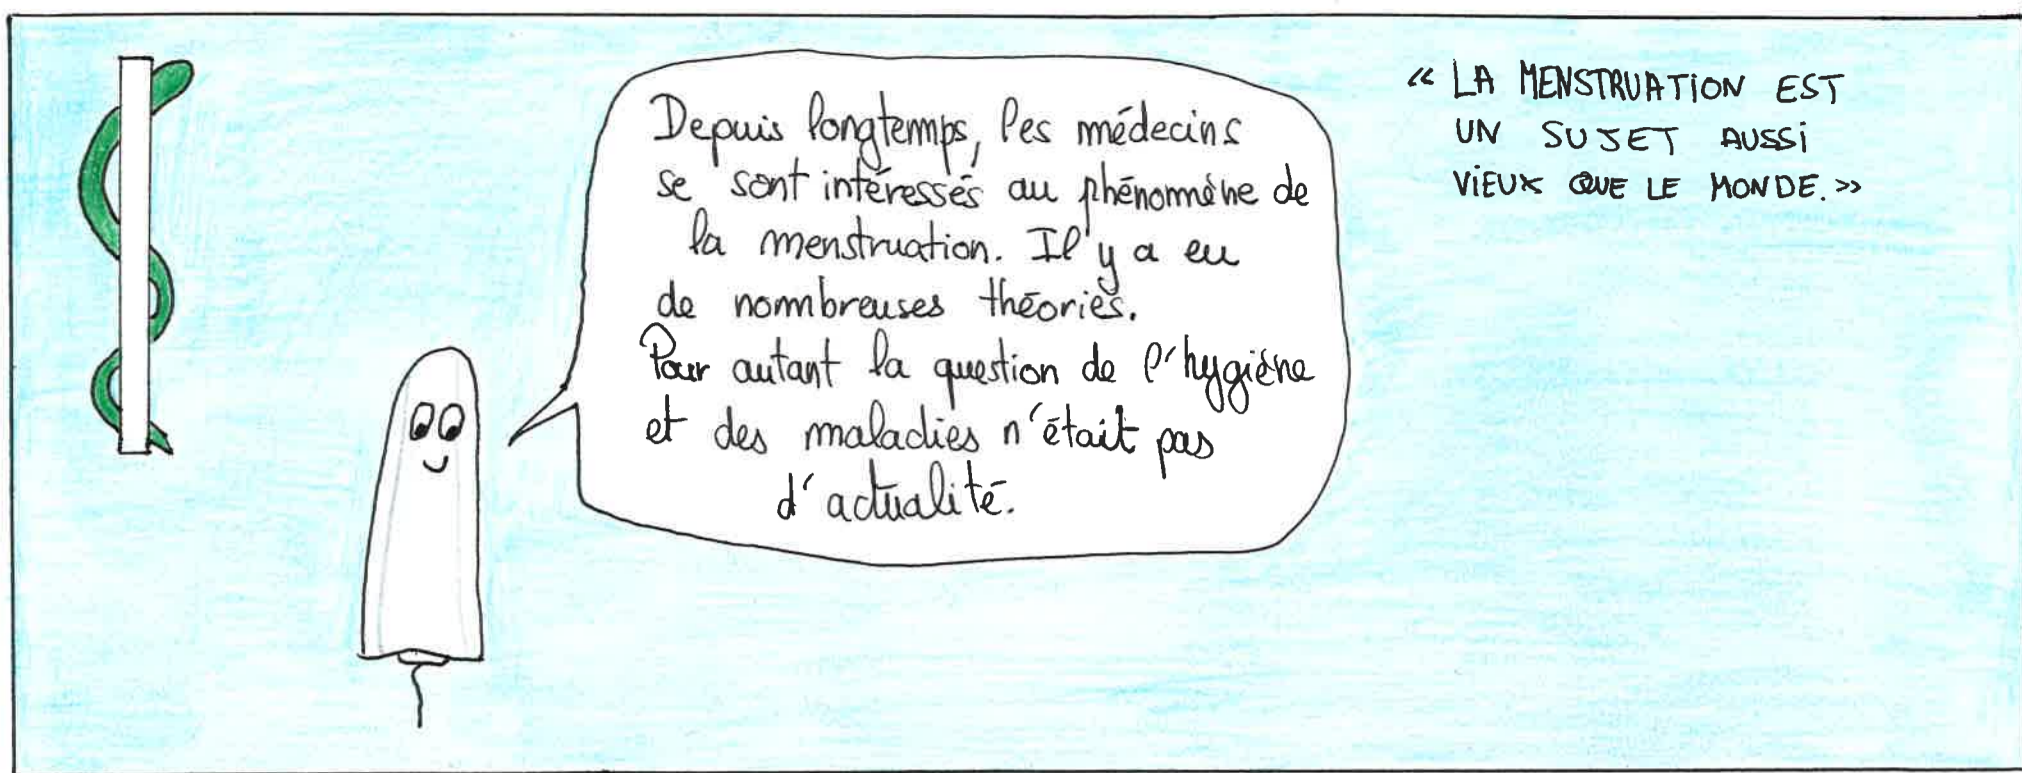 Depuis longtemps, les médecins
se sont intéressés au phénomène de
la menstruation. Il y a eu
de nombreuses théories.
Pour autant la question de l'hygiène
et des maladies n'était pas
d'actualité.
« LA MENSTRUATION EST
UN SUJET AUSSI
VIEUX QUE LE MONDE. »